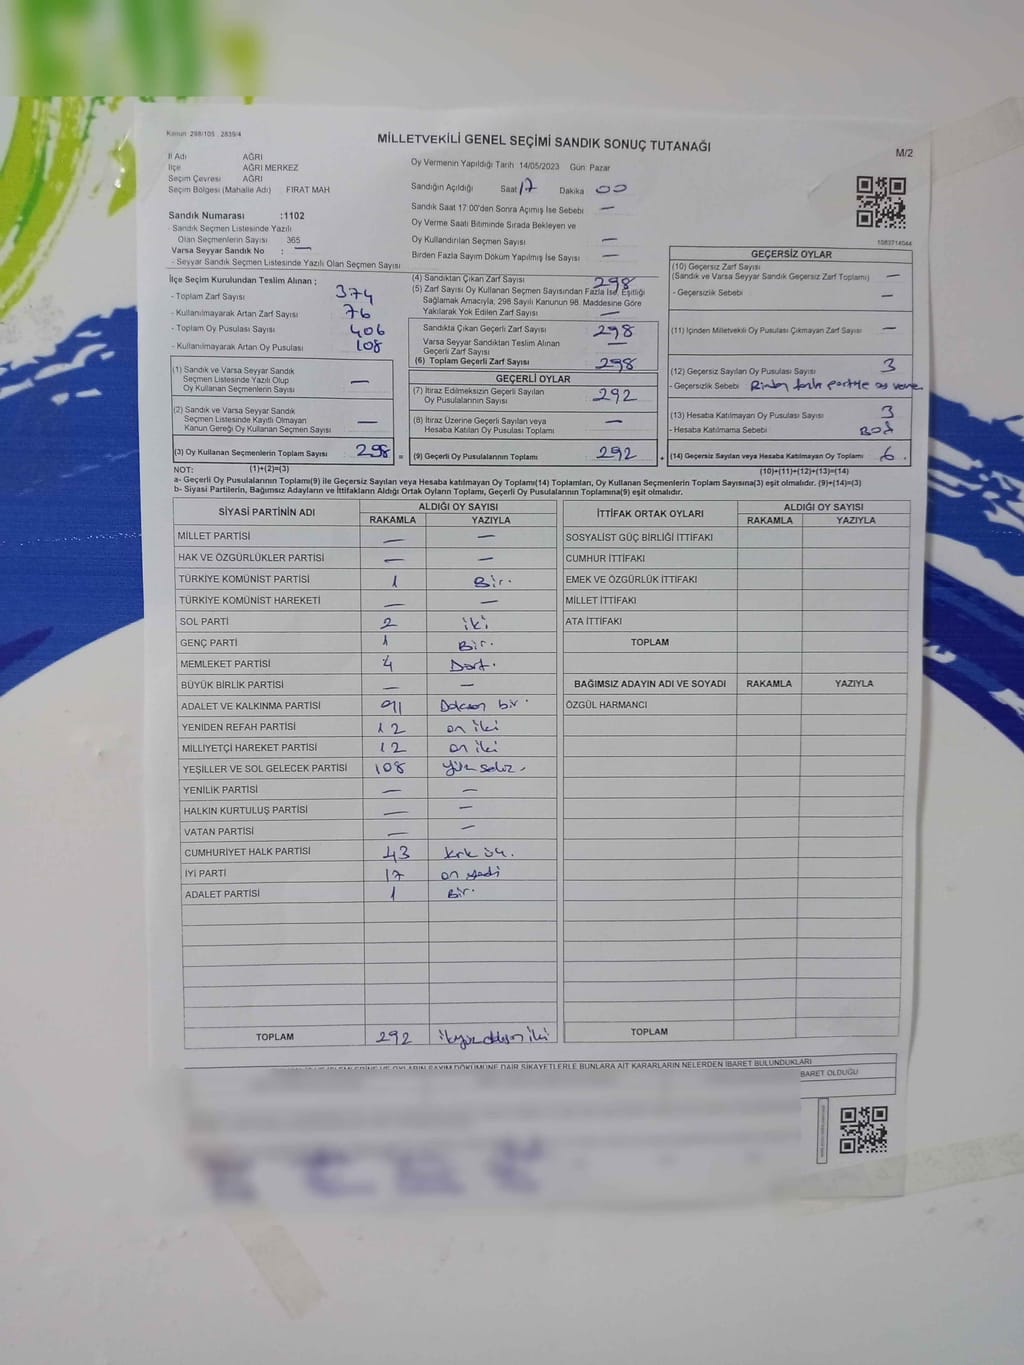 Kanun 298/105 2839/4
MİLLETVEKİLİ GENEL SEÇİMİ SANDIK SONUÇ TUTANAĞI
M/2
İl Adı AĞRI
İlçe AĞRI MERKEZ
Seçim Çevresi AĞRI
Seçim Bölgesi (Mahalle Adı) FIRAT MAH
Sandık Numarası :1102
- Sandık Seçmen Listesinde Yazılı
Olan Seçmenlerin Sayısı 365
Varsa Seyyar Sandık No : —
- Seyyar Sandık Seçmen Listesinde Yazılı Olan Seçmen Sayısı
Oy Vermenin Yapıldığı Tarih 14/05/2023 Gün Pazar
Sandığın Açıldığı Saat 17 Dakika 00
Sandık Saat 17:00'den Sonra Açımış İse Sebebi —
Oy Verme Saati Bitiminde Sırada Bekleyen ve
Oy Kullandırılan Seçmen Sayısı —
Birden Fazla Sayım Döküm Yapılmış İse Sayısı —
1083714044
İlçe Seçim Kurulundan Teslim Alınan ;
- Toplam Zarf Sayısı 374
- Kullanılmayarak Artan Zarf Sayısı 76
- Toplam Oy Pusulası Sayısı 406
- Kullanılmayarak Artan Oy Pusulası 108
(1) Sandık ve Varsa Seyyar Sandık
Seçmen Listesinde Yazılı Olup
Oy Kullanan Seçmenlerin Sayısı —
(2) Sandık ve Varsa Seyyar Sandık
Seçmen Listesinde Kayıtlı Olmayan
Kanun Gereği Oy Kullanan Seçmen Sayısı —
(3) Oy Kullanan Seçmenlerin Toplam Sayısı 298 =
(4) Sandıktan Çıkan Zarf Sayısı 298
(5) Zarf Sayısı Oy Kullanan Seçmen Sayısından Fazla İse, Eşitliği
Sağlamak Amacıyla, 298 Sayılı Kanunun 98. Maddesine Göre
Yakılarak Yok Edilen Zarf Sayısı —
Sandıkta Çıkan Geçerli Zarf Sayısı 298
Varsa Seyyar Sandıktan Teslim Alınan
Geçerli Zarf Sayısı —
(6) Toplam Geçerli Zarf Sayısı 298
GEÇERLİ OYLAR
(7) İtiraz Edilmeksizin Geçerli Sayılan
Oy Pusulalarının Sayısı 292
(8) İtiraz Üzerine Geçerli Sayılan veya
Hesaba Katılan Oy Pusulası Toplamı —
(9) Geçerli Oy Pusulalarının Toplamı 292 +
GEÇERSİZ OYLAR
(10) Geçersiz Zarf Sayısı
(Sandık ve Varsa Seyyar Sandık Geçersiz Zarf Toplamı) —
- Geçersizlik Sebebi —
(11) İçinden Milletvekili Oy Pusulası Çıkmayan Zarf Sayısı —
(12) Geçersiz Sayılan Oy Pusulası Sayısı 3
- Geçersizlik Sebebi Birden fazla partiye oy verme
(13) Hesaba Katılmayan Oy Pusulası Sayısı 3
- Hesaba Katılmama Sebebi Boş
(14) Geçersiz Sayılan veya Hesaba Katılmayan Oy Toplamı 6.
NOT: (1)+(2)=(3) (10)+(11)+(12)+(13)=(14)
a- Geçerli Oy Pusulalarının Toplamı(9) ile Geçersiz Sayılan veya Hesaba katılmayan Oy Toplamı(14) Toplamları, Oy Kullanan Seçmenlerin Toplam Sayısına(3) eşit olmalıdır. (9)+(14)=(3)
b- Siyasi Partilerin, Bağımsız Adayların ve İttifakların Aldığı Ortak Oyların Toplamı, Geçerli Oy Pusulalarının Toplamına(9) eşit olmalıdır.
SİYASİ PARTİNİN ADI ALDIĞI OY SAYISI
RAKAMLA YAZIYLA
MİLLET PARTİSİ — —
HAK VE ÖZGÜRLÜKLER PARTİSİ — —
TÜRKİYE KOMÜNİST PARTİSİ 1 Bir.
TÜRKİYE KOMÜNİST HAREKETİ — —
SOL PARTİ 2 iki
GENÇ PARTİ 1 Bir.
MEMLEKET PARTİSİ 4 Dört.
BÜYÜK BİRLİK PARTİSİ — —
ADALET VE KALKINMA PARTİSİ 91 Doksan bir.
YENİDEN REFAH PARTİSİ 12 on iki
MİLLİYETÇİ HAREKET PARTİSİ 12 on iki
YEŞİLLER VE SOL GELECEK PARTİSİ 108 yüz sekiz.
YENİLİK PARTİSİ — —
HALKIN KURTULUŞ PARTİSİ — —
VATAN PARTİSİ — —
CUMHURİYET HALK PARTİSİ 43 kırk üç.
İYİ PARTİ 17 on yedi
ADALET PARTİSİ 1 Bir.
TOPLAM 292 ikiyüz doksan iki
İTTİFAK ORTAK OYLARI ALDIĞI OY SAYISI
RAKAMLA YAZIYLA
SOSYALİST GÜÇ BİRLİĞİ İTTİFAKI
CUMHUR İTTİFAKI
EMEK VE ÖZGÜRLÜK İTTİFAKI
MİLLET İTTİFAKI
ATA İTTİFAKI
TOPLAM
BAĞIMSIZ ADAYIN ADI VE SOYADI RAKAMLA YAZIYLA
ÖZGÜL HARMANCI
TOPLAM
OYLARIN SAYIM DÖKÜMÜNE DAİR ŞİKAYETLERLE BUNLARA AİT KARARLARIN NELERDEN İBARET BULUNDUKLARI
BARET OLDUĞU